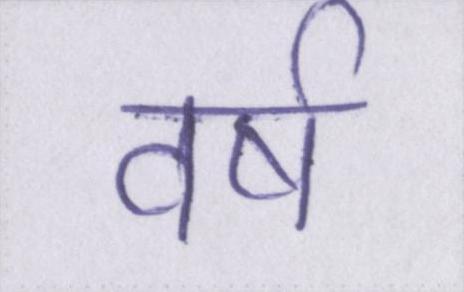 वर्ष